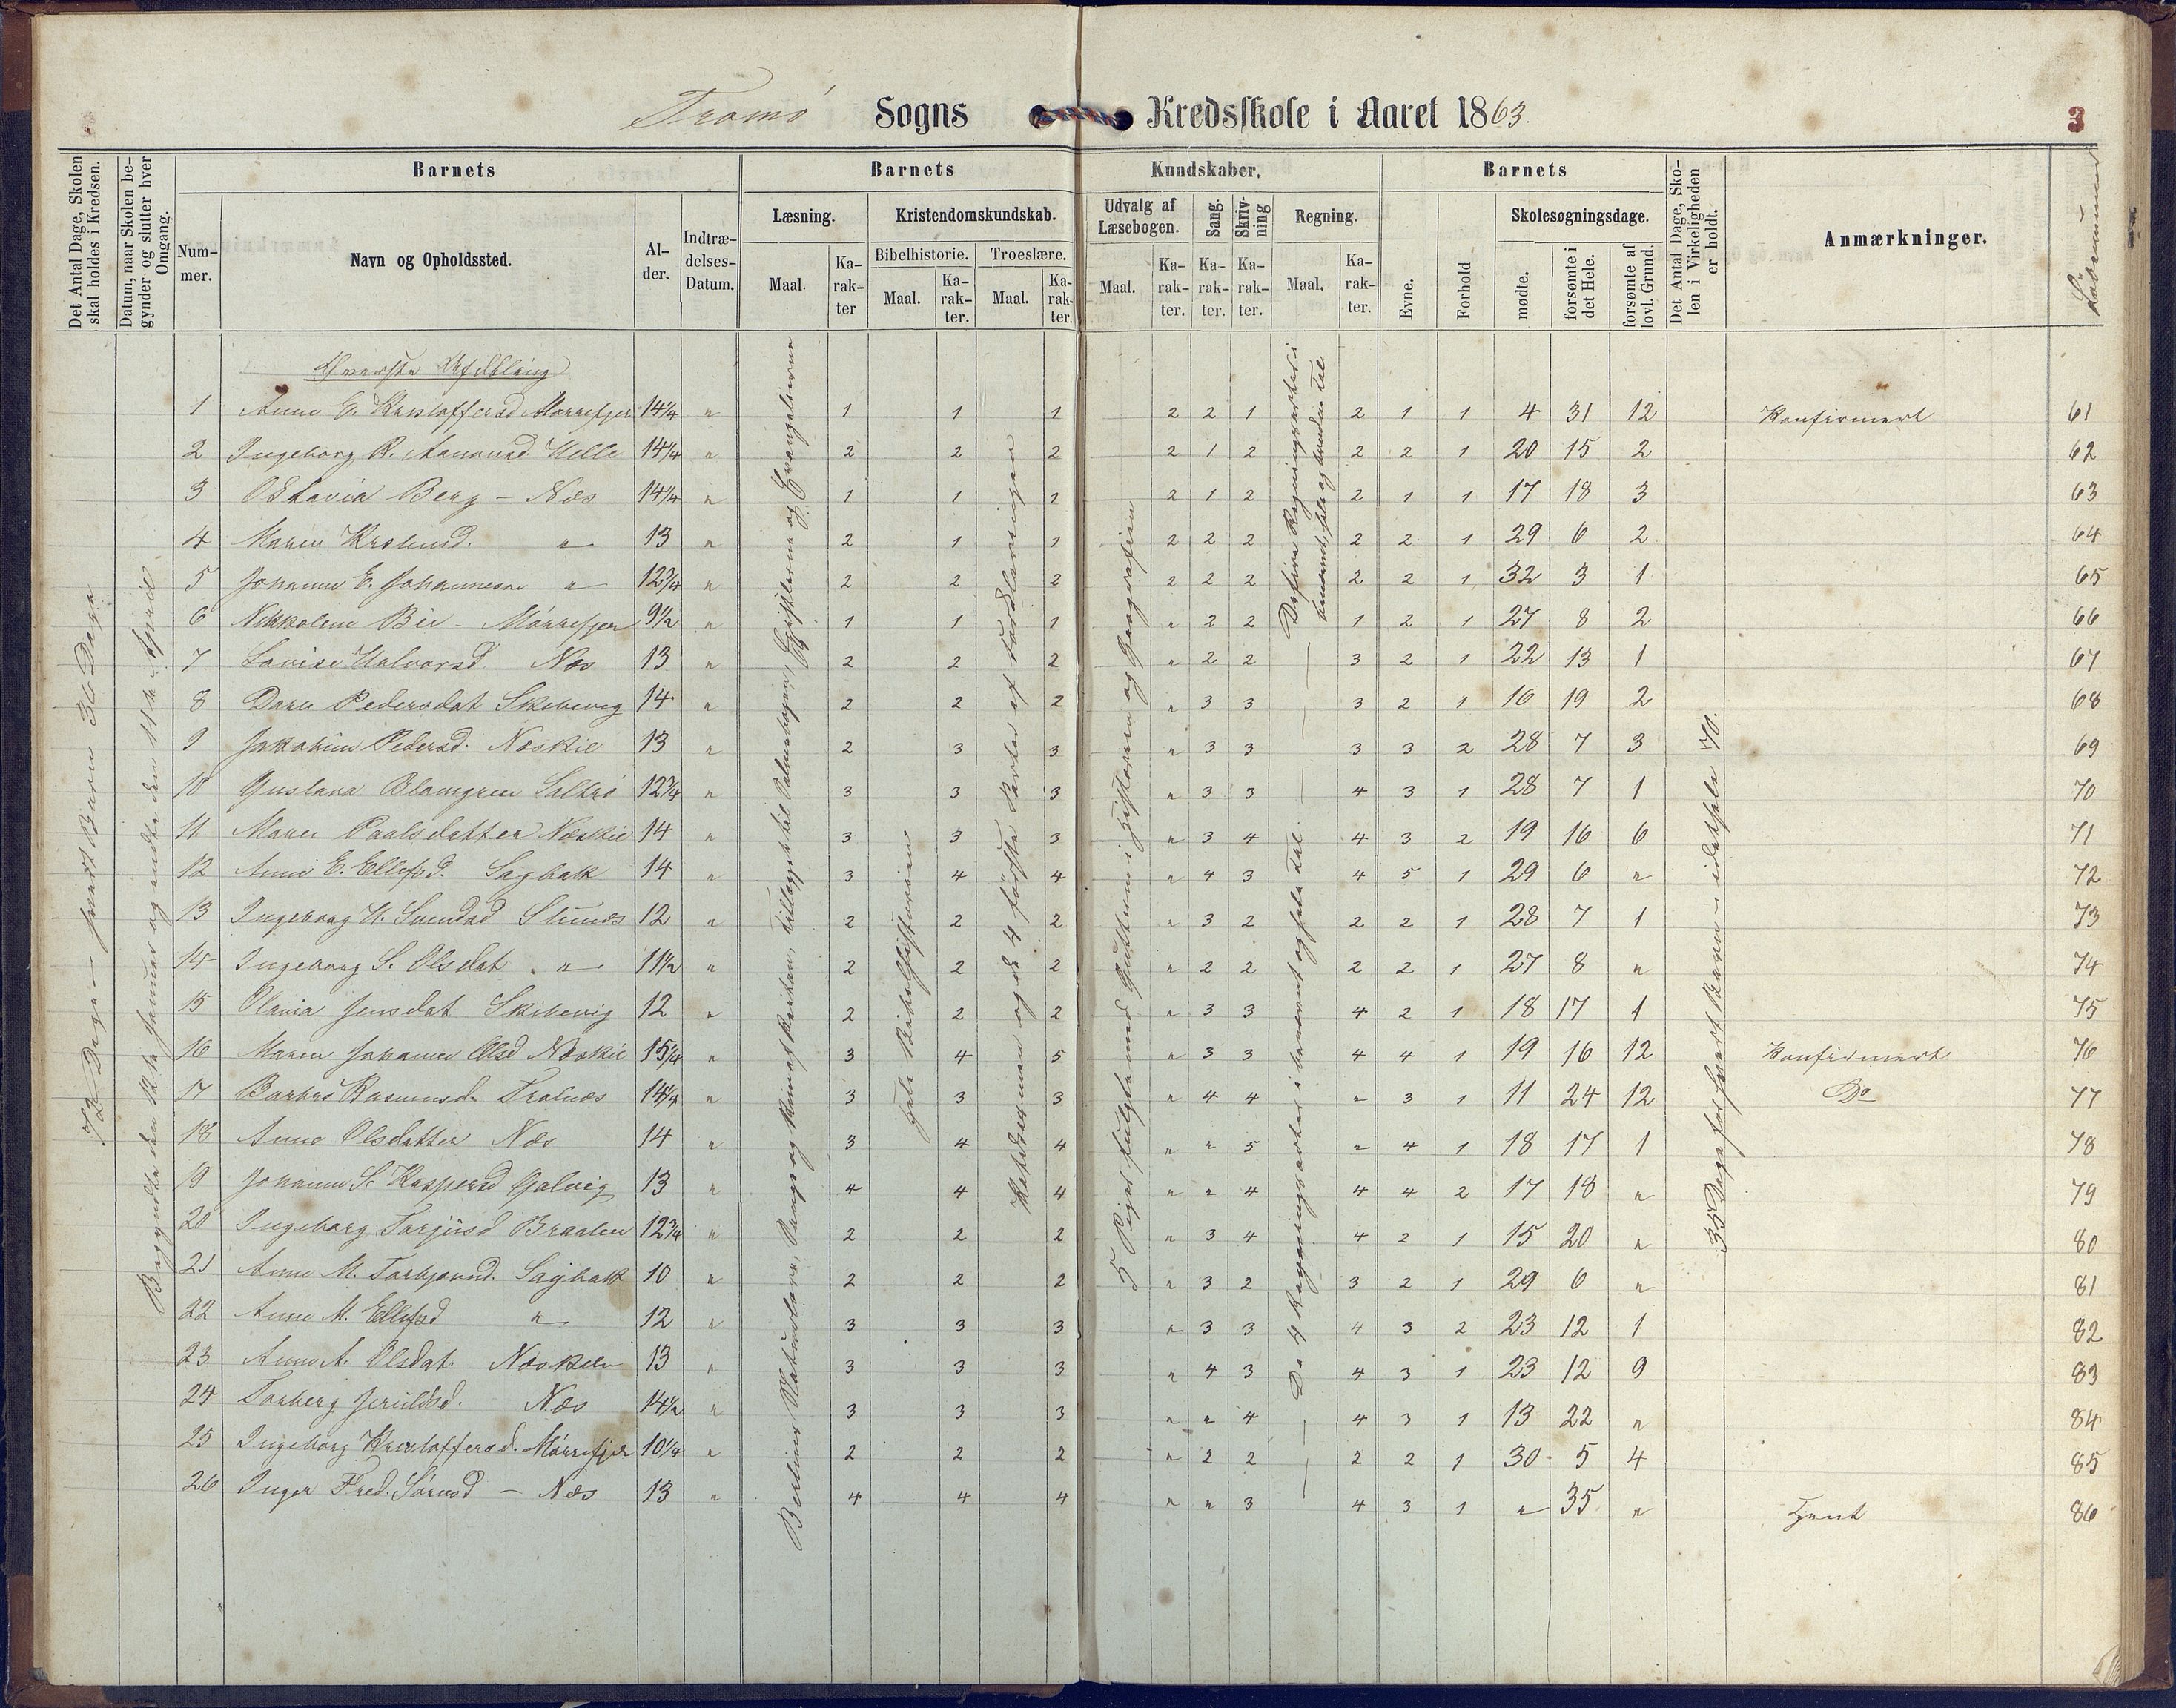 Tromø Sogns Kredsskole i Aaret 1863.
3
Det Antal Dage, Skolen skal holdes i Kredsen.
Datum, naar Skolen begynder og slutter hver Omgang.
Barnets
Nummer.
Navn og Opholdssted.
Alder.
Indtrædelses-Datum.
Barnets Kundskaber.
Læsning.
Maal.
Karakter
Kristendomskundskab.
Bibelhistorie.
Maal.
Karakter.
Troeslære.
Maal.
Karakter.
Udvalg af Læsebogen.
Maal.
Karakter.
Sang.
Karakter.
Skrivning
Karakter.
Regning.
Maal.
Karakter.
Barnets
Evne.
Forhold
Skolesøgningsdage.
mødte.
forsømte i det Hele.
forsømte af lovl. Grund.
Det Antal Dage, Skolen i Virkeligheden er holdt.
Anmærkninger.
Löbenummer
72 Dage – hvert Barn 36 Dage
Begyndte den 12te Januar og endte den 11te April
hele Bibelhistorien
5 Piger fulgte med Gutterne i Historien og Geografien
De 4 Regningsarter i benævnt og hele Tal
35 Dage for hvert Barn – idethele 70.
Øverste Afdeling
1 Anne E. Kristoffersd Mørrefjer 14¼ " 1 1 1 2 2 1 2 1 1 4 31 12 Konfirmert 61
2 Ingeborg R. Aanonsd Helle 14¼ " 2 2 2 2 1 2 2 2 1 20 15 2 62
3 Oktavia Berg – Næs 14¼ " 1 1 1 2 1 2 2 1 1 17 18 3 63
4 Maren Krslund. " 13 " 2 1 1 2 2 2 2 2 1 29 6 2 64
5 Johanne E. Johannesn " 12¾ " 2 2 2 2 2 2 2 2 1 32 3 1 65
6 Nikkoline Bie – Mørrefjer 9½ " 1 1 1 " 2 2 1 2 1 27 8 2 66
7 Lovise Halvorsd Næs 13 " 2 2 2 " 2 2 3 2 1 22 13 1 67
8 Daren Pedersdat Skibevig 14 " 2 2 2 " 3 3 3 2 1 16 19 2 68
9 Jakobine Pedersd. Næskil 13 " 2 3 3 " 3 3 3 3 2 28 7 3 69
10 Gustava Blomgren Saltrø 12¾ " 3 3 3 " 3 3 4 3 1 28 7 1 70
11 Maren Paalsdatter Næskil 14 " 3 3 3 " 3 4 4 3 2 19 16 6 71
12 Anne E. Ellefsd. Sagbak 14 " 3 4 4 " 4 3 4 5 1 29 6 " 72
13 Ingeborg H. Svendsd Stunæs 12 " 2 2 2 " 3 2 2 2 1 28 7 1 73
14 Ingeborg S. Olsdat " 11½ " 2 2 2 " 2 2 2 2 1 27 8 " 74
15 Olavia Jensdat Skibevig 12 " 2 2 2 " 3 3 4 2 1 18 17 1 75
16 Maren Johanne Olsd Næskil 15¼ " 3 4 5 " 3 3 4 4 1 19 16 12 Konfirmert 76
17 Barbro Rasmusd. Tralnæs 14¼ " 3 3 3 " 4 4 " 3 1 11 24 12 Do 77
18 Anne Olsdatter Næs 14 " 3 4 4 " " 5 " 4 1 18 17 1 78
19 Johanne S. Kaspersd Galvig 13 " 4 4 4 " " 4 4 4 2 17 18 " 79
20 Ingeborg Tarjeisd Braaten 12¾ " 2 2 2 " 3 4 4 2 1 15 20 " 80
21 Anne M. Torbjørnsd. Sagbak 10 " 2 2 2 " 3 2 3 2 1 29 6 " 81
22 Anne M. Ellefsd " 12 " 3 3 3 " 3 3 4 3 2 23 12 1 82
23 Anne A. Olsdat. Næskiln 13 " 3 3 3 " 4 3 4 3 1 23 12 9 83
24 Torberg Jeruldsd. Næs 14½ " 3 3 3 " " 4 4 3 1 13 22 " 84
25 Ingeborg Kristoffersd. Mørrefjer 10¼ " 2 2 2 " 2 2 2 2 1 30 5 4 85
26 Inger Fred. Sørensd – Næs 13 " 4 4 4 " " 3 4 3 1 " 35 " Tjent 86